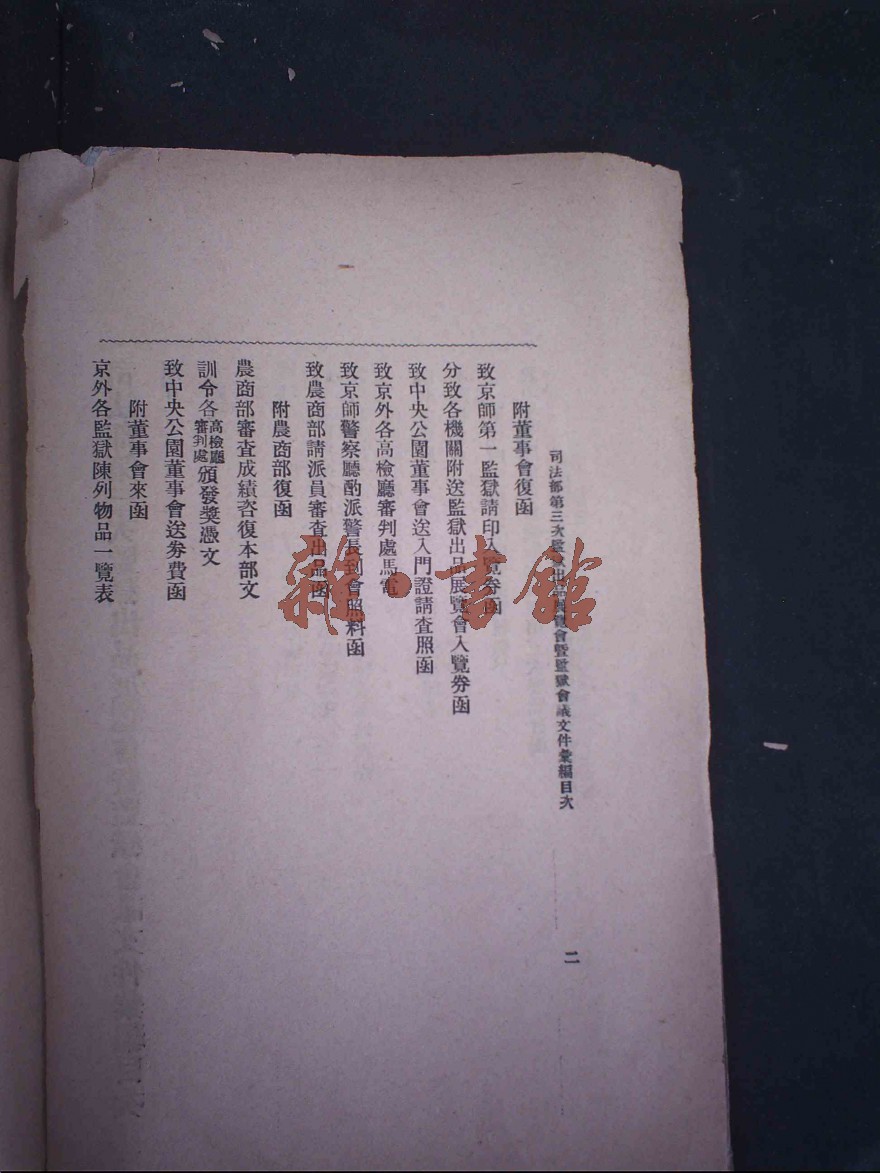 司法部第三次監獄出品展覽會暨監獄會議文件彙編目次
二
附董事會復函
致京師第一監獄請印入覽券函
分致各機關附送監獄出品展覽會入覽券函
致中央公園董事會送入門證請查照函
致京外各高檢廳審判處馬電
致京師警察廳酌派警長到會照料函
致農商部請派員審查出品函
附農商部復函
農商部審查成績咨復本部文
訓令各高檢廳審判處頒發獎憑文
致中央公園董事會送券費函
附董事會來函
京外各監獄陳列物品一覽表
雜·書館